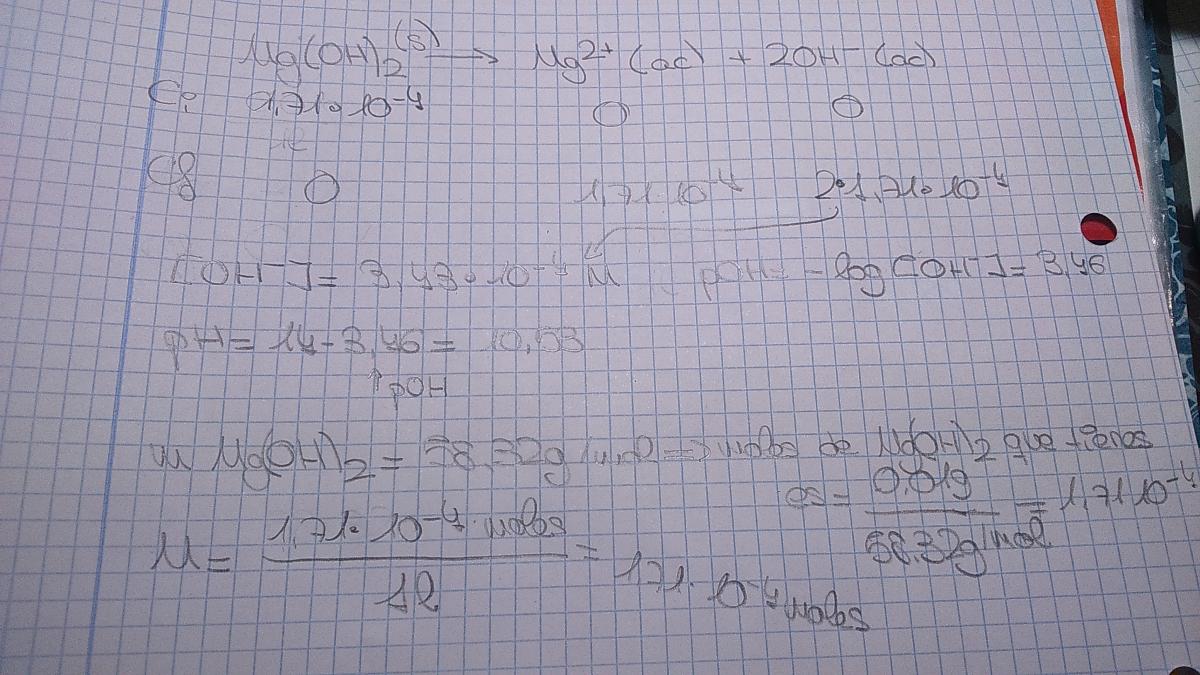 Mg(OH)2(s) → Mg2+ (ac) + 2OH- (ac)
Ci 1,71•10-4 0 0
Cf 0 1,71·10-4 2•1,71•10-4
[OH-]= 3,43•10-4 M pOH= -log[OH-]=3,46
pH= 14-3,46= 10,53
↑pOH
m Mg(OH)2= 58,32g/mol => moles de Mg(OH)2 que tienes
es= 0,01g / 58,32g/mol = 1,71 10-4
M= 1,71•10-4 moles / 1l = 1,71·10-4 moles